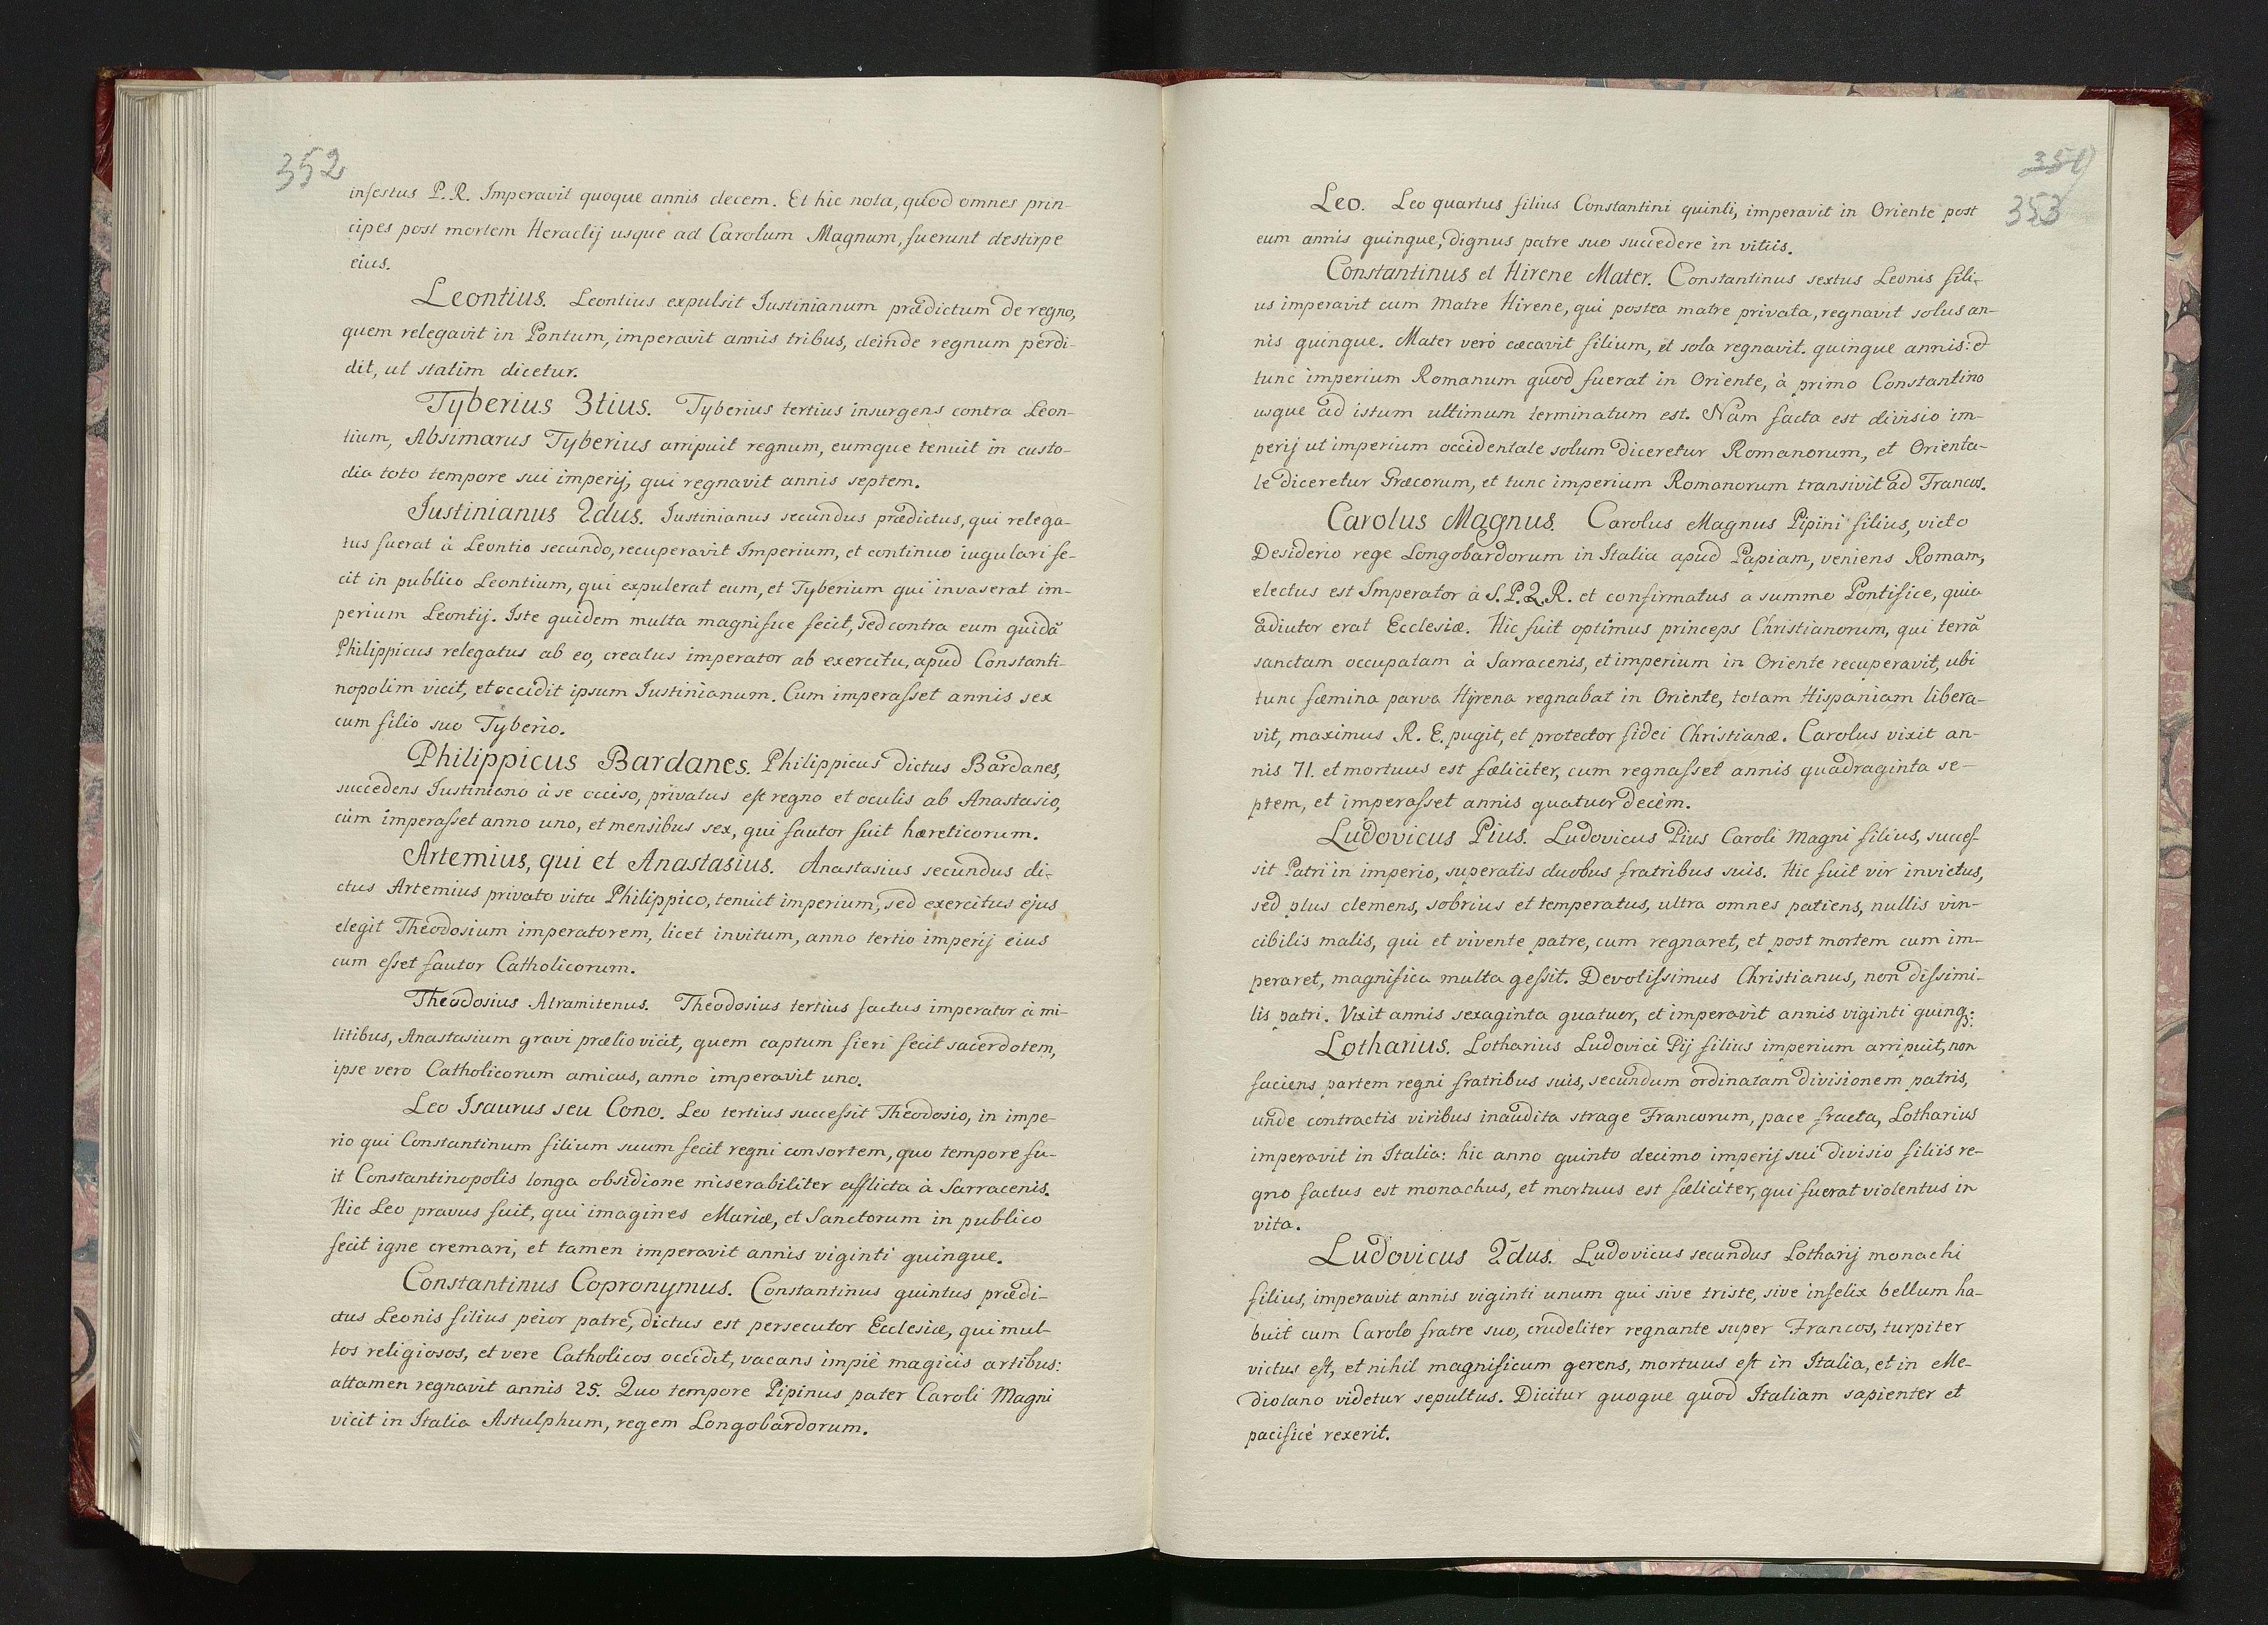 352
infestus P. R. Imperavit quoque annis decem. Et hic nota, quod omnes prin-
cipes post mortem Heraclij usque ad Carolum Magnum, fuerunt destirpe
eius.
Leontius. Leontius expulsit Iustinianum prædictum de regno,
quem relegavit in Pontum, imperavit annis tribus, deinde regnum perdi-
dit, ut statim dicetur.
Tyberius 3tius. Tyberius tertius insurgens contra Leon-
tium, Absimarus Tyberius arripuit regnum, eumque tenuit in custo-
dia toto tempore sui imperij, qui regnavit annis septem.
Iustinianus 2dus. Iustinianus secundus prædictus, qui relega-
tus fuerat à Leontio secundo, recuperavit Imperium, et continuo iugulari fe-
cit in publico Leontium, qui expulerat eum, et Tyberium qui invaserat im-
perium Leontij. Iste quidem multa magnifice fecit, sed contra eum quidã
Philippicus relegatus ab eo, creatus imperator ab exercitu, apud Constanti-
nopolim vicit, et occidit ipsum Iustinianum. Cum imperasset annis sex
cum filio suo Tyberio.
Philippicus Bardanes. Philippicus dictus Bardanes,
succedens Iustiniano à se occiso, privatus est regno et oculis ab Anastasio,
cùm imperasset anno uno, et mensibus sex, qui fautor fuit hæreticorum.
Artemius, qui et Anastasius. Anastasius secundus di-
ctus Artemius privato vita Philippico, tenuit imperium, sed exercitus ejus
elegit Theodosium imperatorem, licet invitum, anno tertio imperij eius
cum esset fautor Catholicorum.
Theodosius Atramitenus. Theodosius tertius factus imperator à mi-
litibus, Anastasium gravi prælio vicit, quem captum fieri fecit sacerdotem,
ipse vero Catholicorum amicus, anno imperavit uno.
Leo Isaurus seu Cono. Leo tertius successit Theodosio, in impe-
rio qui Constantinum filium suum fecit regni consortem, quo tempore fu-
it Constantinopolis longa obsidione miserabiliter afflicta à Sarracenis.
Hic Leo pravus fuit, qui imagines Mariæ, et Sanctorum in publico
fecit igne cremari, et tamen imperavit annis viginti quinque.
Constantinus Copronymus. Constantinus quintus prædi-
ctus Leonis filius peior patre, dictus est persecutor Ecclesiæ, qui mul-
tos religiosos, et vere Catholicos occidit, vacans impiè magicis artibus:
attamen regnavit annis 25. Quo tempore Pipinus pater Caroli Magni
vicit in Italia Astulphum, regem Longobardorum.
353
Leo. Leo quartus filius Constantini quinti, imperavit in Oriente post
eum annis quinque, dignus patre suo succedere in vitiis.
Constantinus et Hirene Mater. Constantinus sextus Leonis fili-
us imperavit cum Matre Hirene, qui postea matre privata, regnavit solus an-
nis quinque. Mater verò cæcavit filium, et sola regnavit. quinque annis: et
tunc imperium Romanum quod fuerat in Oriente, à primo Constantino
usque ad istum ultimum terminatum est. Nam facta est divisio im-
perij ut imperium occidentale solum diceretur Romanorum, et Orienta-
le diceretur Græcorum, et tunc imperium Romanorum transivit ad Francos.
Carolus Magnus. Carolus Magnus Pipini filius, victo
Desiderio rege Longobardorum in Italia apud Papiam, veniens Romam,
electus est Imperator à S. P. Q. R. et confirmatus a summo Pontifice, quia
adiutor erat Ecclesiæ. Hic fuit optimus princeps Christianorum, qui terrã
sanctam occupatam à Sarracenis, et imperium in Oriente recuperavit, ubi
tunc fæmina parva Hyrena regnabat in Oriente, totam Hispaniam libera-
vit, maximus R. E. pugit, et protector fidei Christianæ. Carolus vixit an-
nis 71. et mortuus est fæliciter, cum regnasset annis quadraginta se-
ptem, et imperasset annis quatuor decem.
Ludovicus Pius. Ludovicus Pius Caroli Magni filius, succes-
sit Patri in imperio, superatis duobus fratribus suis. Hic fuit vir invictus,
sed plus clemens, sobrius et temperatus, ultra omnes patiens, nullis vin-
cibilis malis, qui et vivente patre, cum regnaret, et post mortem cum im-
peraret, magnifica multa gessit. Devotissimus Christianus, non dissimi-
lis patri. Vixit annis sexaginta quatuor, et imperavit annis viginti quinq;:
Lotharius. Lotharius Ludovici Pij filius imperium arripuit, non
faciens partem regni fratribus suis, secundum ordinatam divisionem patris,
unde contractis viribus inaudita strage Francorum, pace fracta, Lotharius
imperavit in Italia: hic anno quinto decimo imperij sui diviso filiis re-
gno factus est monachus, et mortuus est fæliciter, qui fuerat violentus in
vita.
Ludovicus 2dus. Ludovicus secundus Lotharij monachi
filius, imperavit annis viginti unum qui sive triste, sive infelix bellum ha-
buit cum Carolo fratre suo, crudeliter regnante super Francos, turpiter
victus est, et nihil magnificum gerens, mortuus est in Italia, et in Me-
diolano videtur sepultus. Dicitur quoque quod Italiam sapienter et
pacificè rexerit.